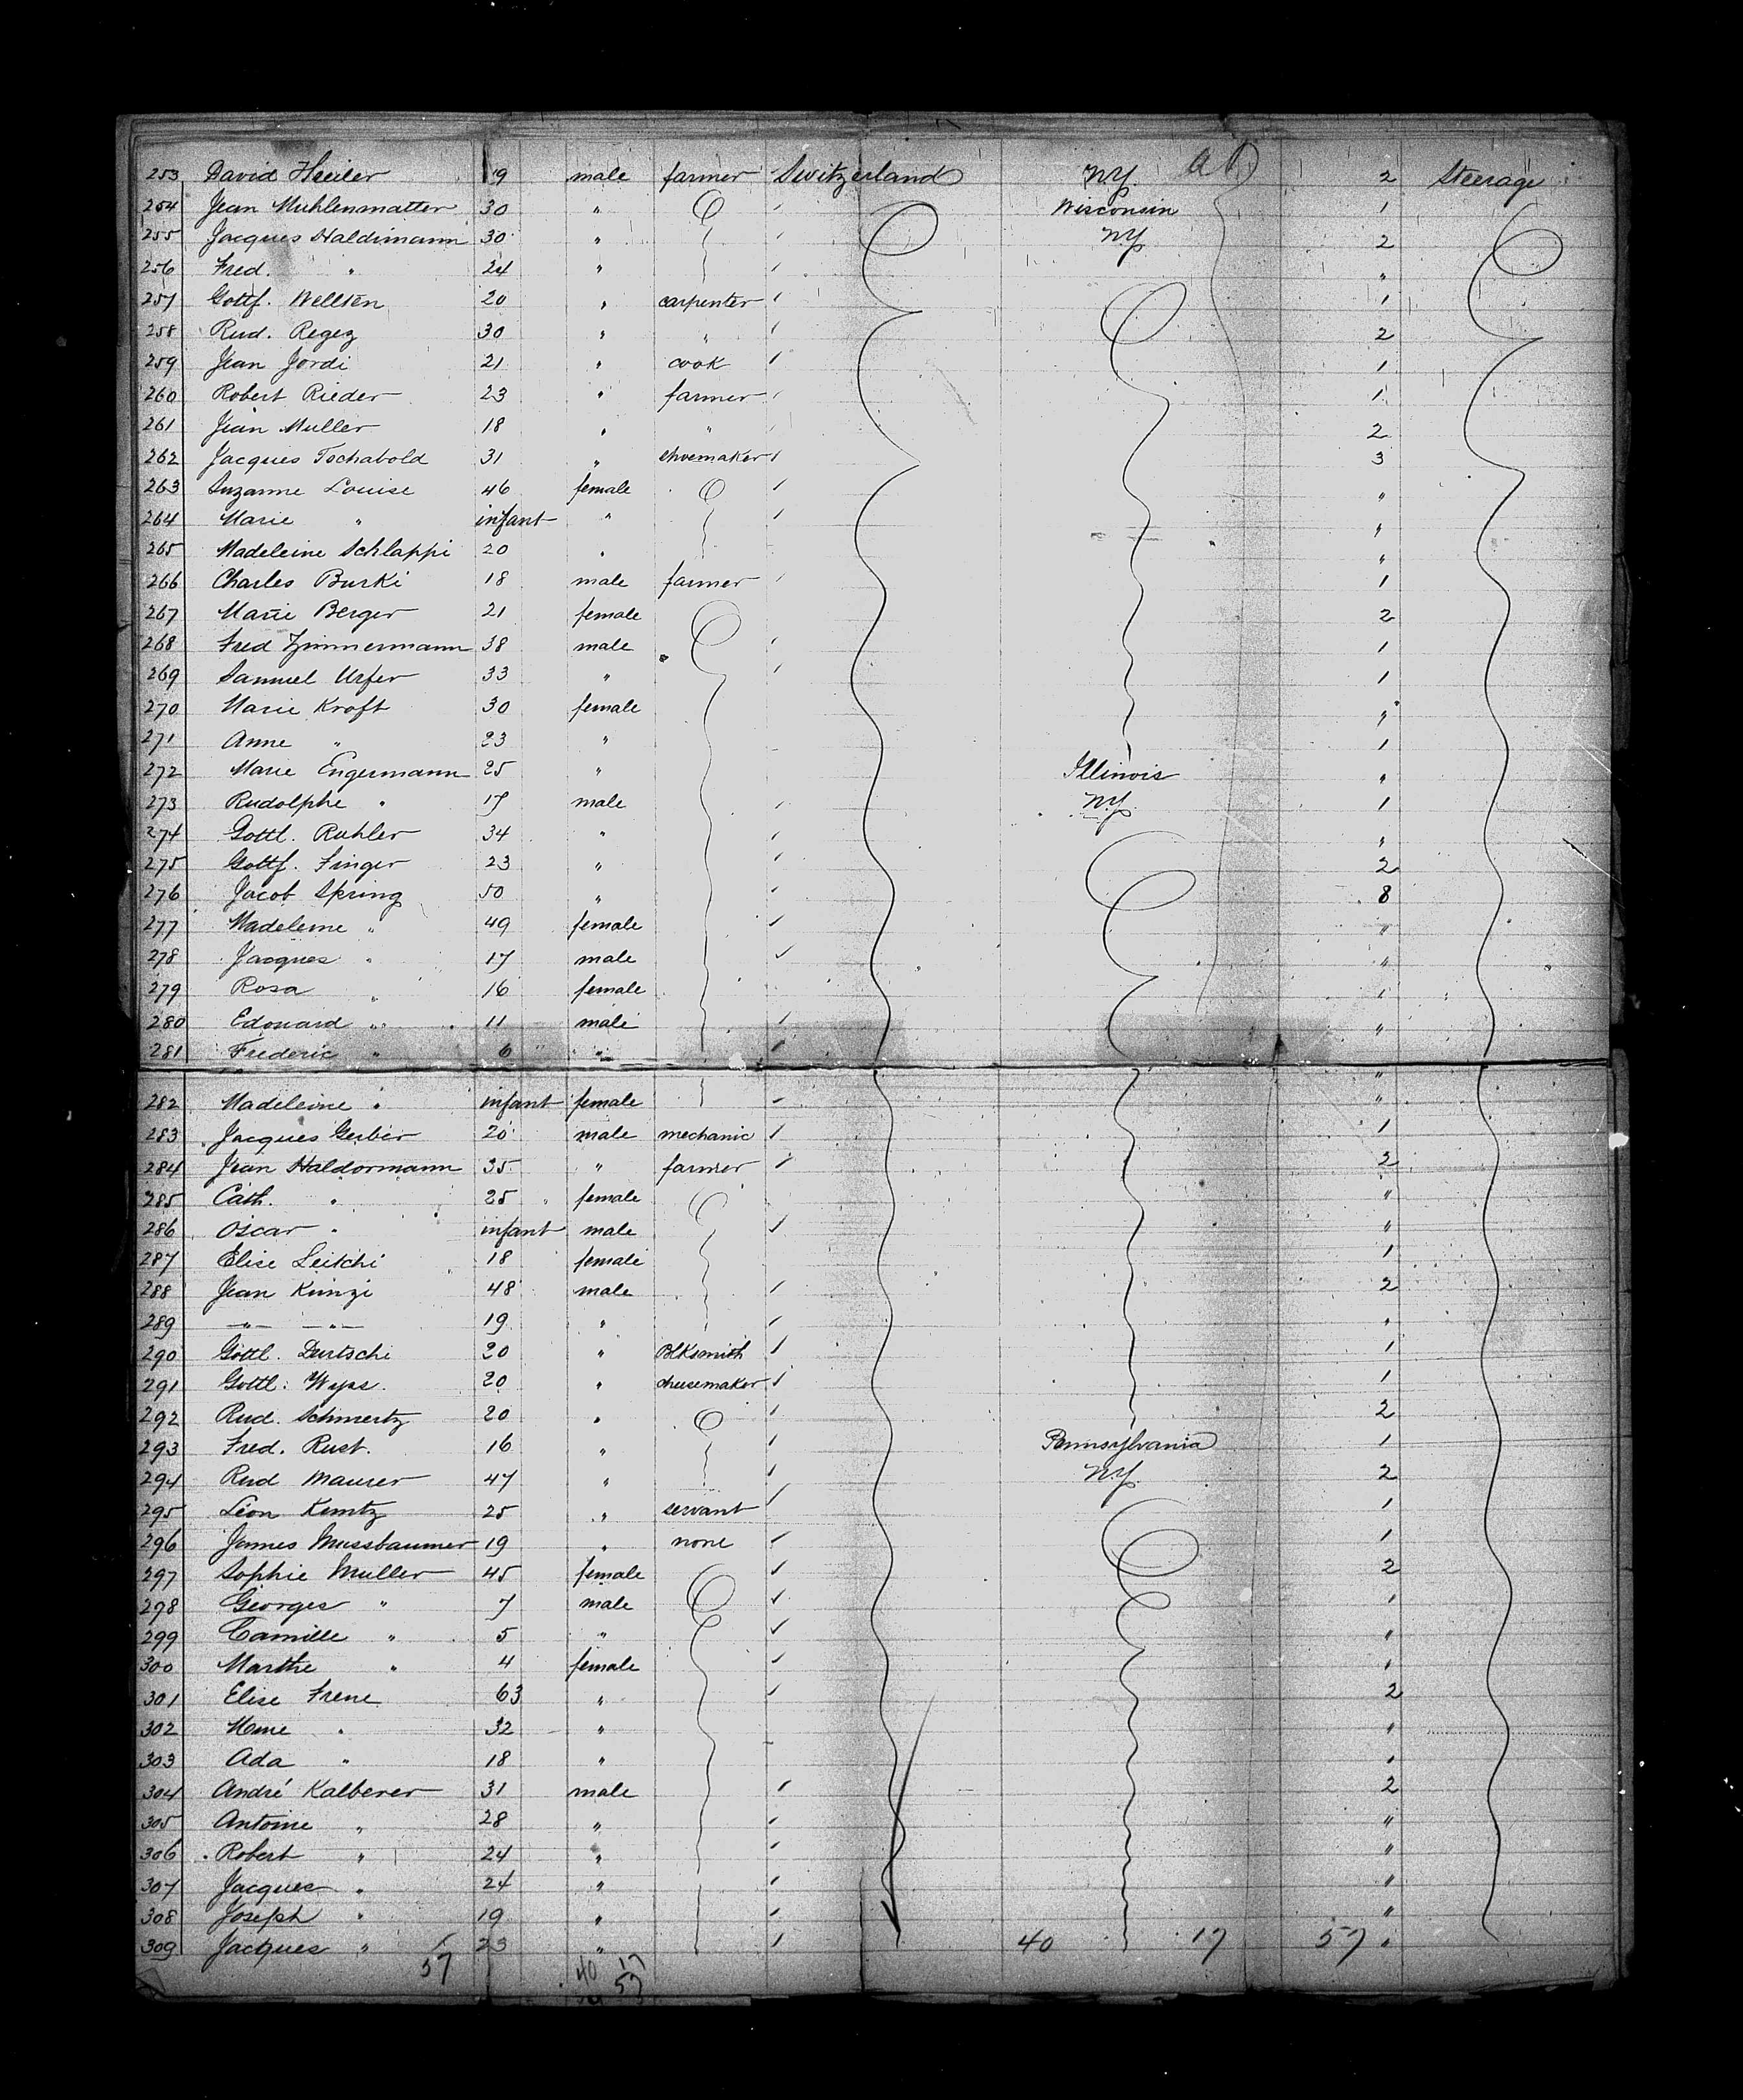 253 David Hieiler 19 male farmer Switzerland N.Y. 2 Steerage
254 Jean Muhlensmatter 30 " Wisconsin 1
255 Jacques Haldimann 30 " N.Y. 2
256 Fred. " 24 " "
257 Gottf. Wellsen 20 " carpenter 1
258 Rud. Regez 30 " " 2
259 Jean Jordi 21 " cook 1
260 Robert Rieder 23 " farmer 1
261 Jean Muller 18 " " 2
262 Jacques Tschabold 31 " shoemaker 3
263 Suzanne Louise 46 female "
264 Marie " infant " "
265 Madeleine Schlappi 20 " "
266 Charles Burki 18 male farmer 1
267 Marie Berger 21 female 2
268 Fred Zimmermann 38 male 1
269 Samuel Urfer 33 " 1
270 Marie Kroft 30 female "
271 Anne " 23 " 1
272 Marie Engermann 25 " Illinois "
273 Rudolphe " 17 male N.Y. 1
274 Gottl. Ruhler 34 " "
275 Gottf. Finger 23 " 2
276 Jacob Spring 50 " 8
277 Madeleine " 49 female "
278 Jacques " 17 male "
279 Rosa " 16 female "
280 Edouard " 11 male "
281 Frederic " 6 " "
282 Madeleine " infant female "
283 Jacques Gerber 20 male mechanic 1
284 Jean Haldormann 35 " farmer 2
285 Cath. " 25 female "
286 Oscar " infant male "
287 Elise Leitchi 18 female 1
288 Jean Kunzi 48 male 2
289 -"- -"- 19 " "
290 Gottl. Durtschi 20 " Blksmith 1
291 Gottl. Wyss. 20 " cheesemaker 1
292 Rud. Schmertz 20 " 2
293 Fred. Rust. 16 " Pennsylvania 1
294 Rud Maurer 47 " N.Y. 2
295 Léon Kuntz 25 " servant 1
296 James Mussbaumer 19 " none 1
297 Sophie Muller 45 female 2
298 Georges " 7 male "
299 Camille " 5 " "
300 Marthe " 4 female "
301 Elise Frene 63 " 2
302 " 32 " "
303 Ada " 18 " "
304 André Kalberer 31 male 2
305 Antoine " 28 " "
306 Robert " 24 " "
307 Jacques " 24 " "
308 Joseph " 19 " "
309 Jacques " 23 " 40 17 57 "
57 40 17
57